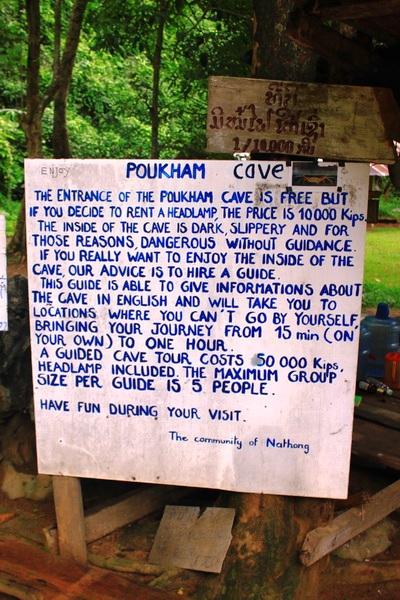 ที่นี่
1/10,000 ກີບ
Enjoy
POUKHAM cave
THE ENTRANCE OF THE POUKHAM CAVE IS FREE BUT
IF YOU DECIDE TO RENT A HEADLAMP, THE PRICE IS 10 000 Kips.
THE INSIDE OF THE CAVE IS DARK, SLIPPERY AND FOR
THOSE REASONS, DANGEROUS WITHOUT GUIDANCE.
IF YOU REALLY WANT TO ENJOY THE INSIDE OF THE
CAVE, OUR ADVICE IS TO HIRE A GUIDE.
THIS GUIDE IS ABLE TO GIVE INFORMATIONS ABOUT
THE CAVE IN ENGLISH AND WILL TAKE YOU TO
LOCATIONS WHERE YOU CAN'T GO BY YOURSELF,
BRINGING YOUR JOURNEY FROM 15 min (ON
YOUR OWN) TO ONE HOUR.
A GUIDED CAVE TOUR COSTS 50 000 Kips,
HEADLAMP INCLUDED. THE MAXIMUM GROUP
SIZE PER GUIDE IS 5 PEOPLE.
HAVE FUN DURING YOUR VISIT.
The community of Nathong